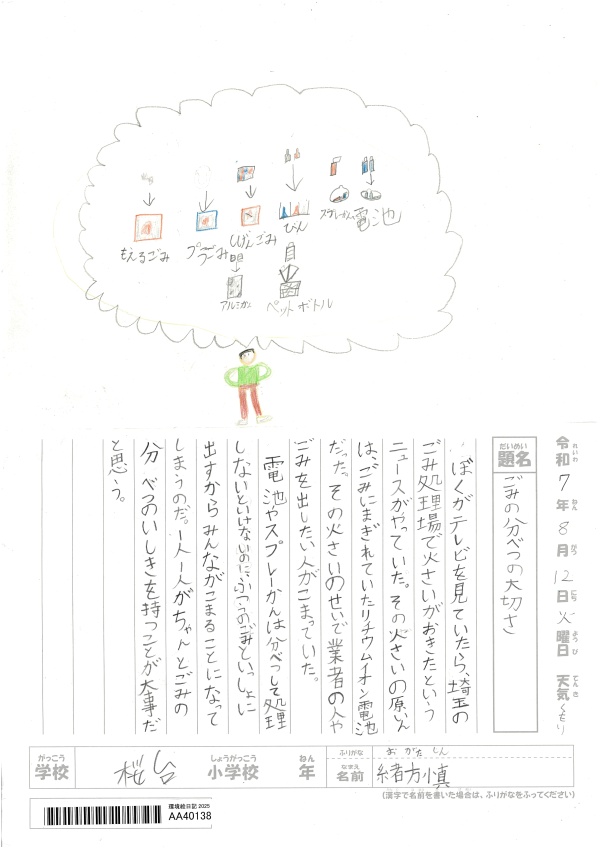 もえるごみ
プラごみ
しげんごみ
びん
スプレーかん
電池
アルミカン
ペットボトル
令和7年8月12日火曜日 天気くもり
れいわ ねん がつ にち ようび てんき
だいめい
題名
ごみの分べつの大切さ
ぼくがテレビを見ていたら、埼玉の
ごみ処理場で火さいがおきたという
ニュースがやっていた。その火さいの原いん
は、ごみにまぎれていたリチウムイオン電池
だった。その火さいのせいで業者の人や
ごみを出したい人がこまっていた。
電池やスプレーかんは分べつして処理
しないといけないのに、ふつうのごみといっしょに
出すからみんながこまることになって
しまうのだ。一人一人がちゃんとごみの
分べつのいしきを持つことが大事だ
と思う。
がっこう しょうがっこう ねん
学校 桜台 小学校 年
ふりがな おがた しん
なまえ
名前 緒方慎
(漢字で名前を書いた場合は、ふりがなをふってください)
環境絵日記 2025
AA40138